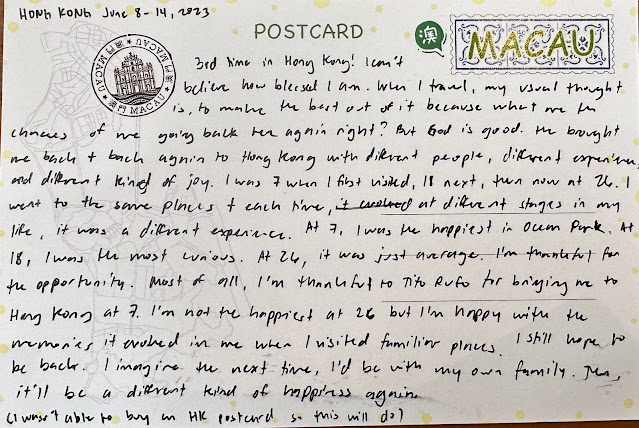 HONG KONG June 8-14, 2023
POSTCARD
澳
MACAU
澳門 MACAU 澳門 MACAU
3rd time in Hong Kong! I can't
believe how blessed I am. When I travel, my usual thought
is, to make the best out of it because what are the
chances of me going back there again right? But God is good. He brought
me back & back again to Hong Kong with different people, different experiences
and different kind of joy. I was 7 when I first visited, 18 next, then now at 26. I
went to the same places & each time, it evoked at different stages in my
life, it was a different experience. At 7, I was the happiest in Ocean Park. At
18, I was the most curious. At 26, it was just average. I'm thankful for
the opportunity. Most of all, I'm thankful to Tito Rufo for bringing me to
Hong Kong at 7. I'm not the happiest at 26 but I'm happy with the
memories it evoked in me when I visited familiar places. I still hope to
be back. I imagine the next time, I'd be with my own family. Then,
it'll be a different kind of happiness again.
(I wasn't able to buy an HK postcard so this will do)